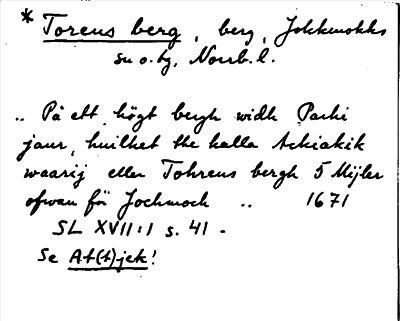 * Torens berg, berg, Jokkmokks
sn o. tg, Norrb. l.
.. På ett högt bergh widh Parki
jaur, huilket the kalla Achiakik
waarij eller Tohrens bergh 5 Mijler
ofwan för Jochmoch .. 1671
SL XVII:1 s. 41 -
Se At(t)jek!